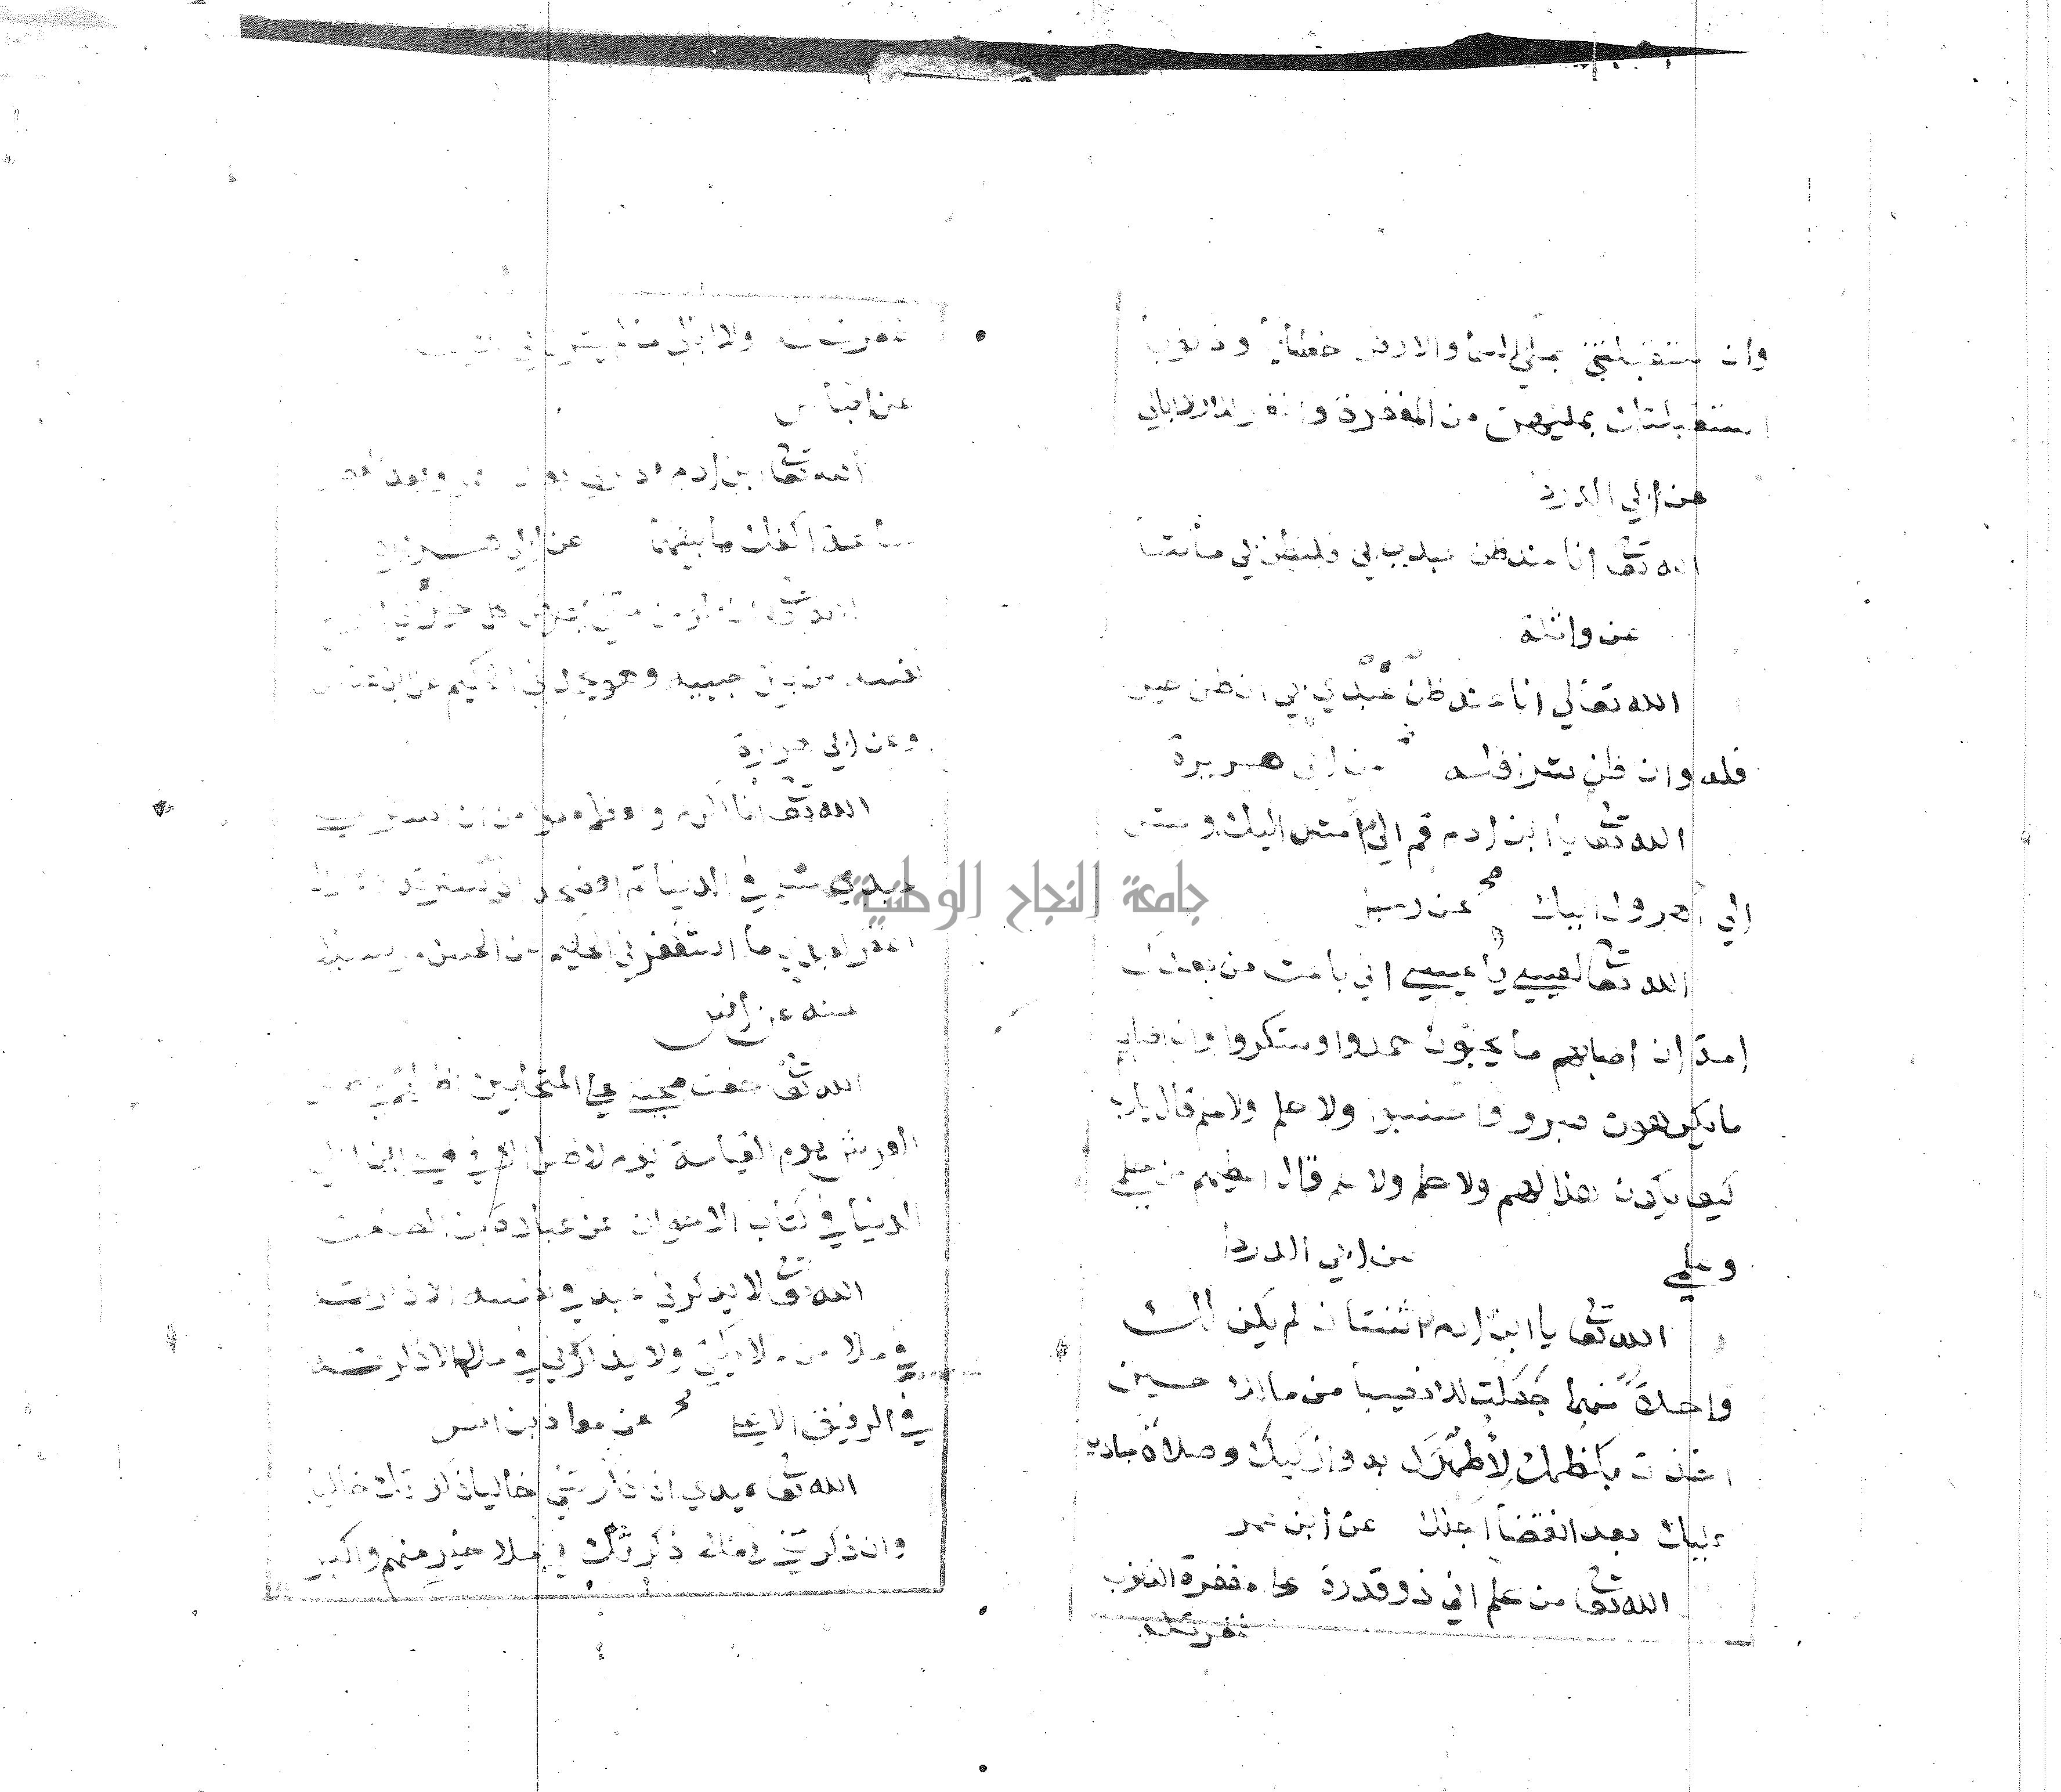 وان ستقبلتني بملي السما والارض خطايا وذنوبا
استقبلتك بمليهن من المغفرة واغفر لك ولا ابالي
عن ابي الدردا
الله تعا انا عند ظن عبدي بي فليظن بي ما شا
عن واثلة
الله تعالي انا عند ظن عبدي بي ان ظن خير
فله وان ظن شرا فله عن ابي هريرة
الله تعا يا ابن ادم قم الي امش اليك وامش
الي اهرول اليك عن رجل
الله تعا لعيسي يا عيسي اني باعث من بعدك
امة ان اصابهم ما يحبون حمدوا وشكروا وان اصابهم
ما يكرهون صبروا واحتسبوا ولا حلم ولا علم قال يارب
كيف يكون هذا لهم ولا حلم ولا علم قال اعطيهم من حلمي
وعلمي عن ابي الدردا
الله تعا يا ابن ادم اثنتان لم يكن لك
واحدة منهما جعلت لك نصيبا من مالك حين
اخذت بكظمك لاطهرك به وازكيك وصلاة عبادي
عليك بعد انقضا اجلك عن ابن عمر
الله تعا من علم اني ذو قدرة علي مغفرة الذنوب
غفرت له
غفرت له ولا ابالي ما لم يشرك بي
عن ابن عباس
الله تعا ابن ادم اذكرني بعد وبعد العصر
ساعة اكفك ما بينهما عن ابي هريرة
الله تعا ان المومن مني
نفسه من بين جنبيه وهو يحمدني الحكيم عن ابن عباس
وعن ابي هريرة
الله تعا انا اكرم واعظم عفوا من ان استر علي
عبدي في الدنيا ثم افضحه
اغفر لعبدي ما استغفرني الحكيم عن الحسن
عنه عن انس
الله تعا حقت محبتي علي المتحابين اظلهم في ظل
العرش يوم القيامة يوم لا ظل الا ظلي ابن ابي
الدنيا في كتاب الاخوان عن عبادة بن الصامت
الله تعا لا يذكرني عبد في نفسه الا ذكرته
في ملا من ملايكتي ولا يذكرني في ملا الا ذكرته
في الرفيق الاعلي عن معاذ بن انس
الله تعا عبدي ان ذكرتني خاليا ذكرتك خاليا
وان ذكرتني في ملا ذكرتك في ملا خير منهم واكبر
جامعة النجاح الوطنية